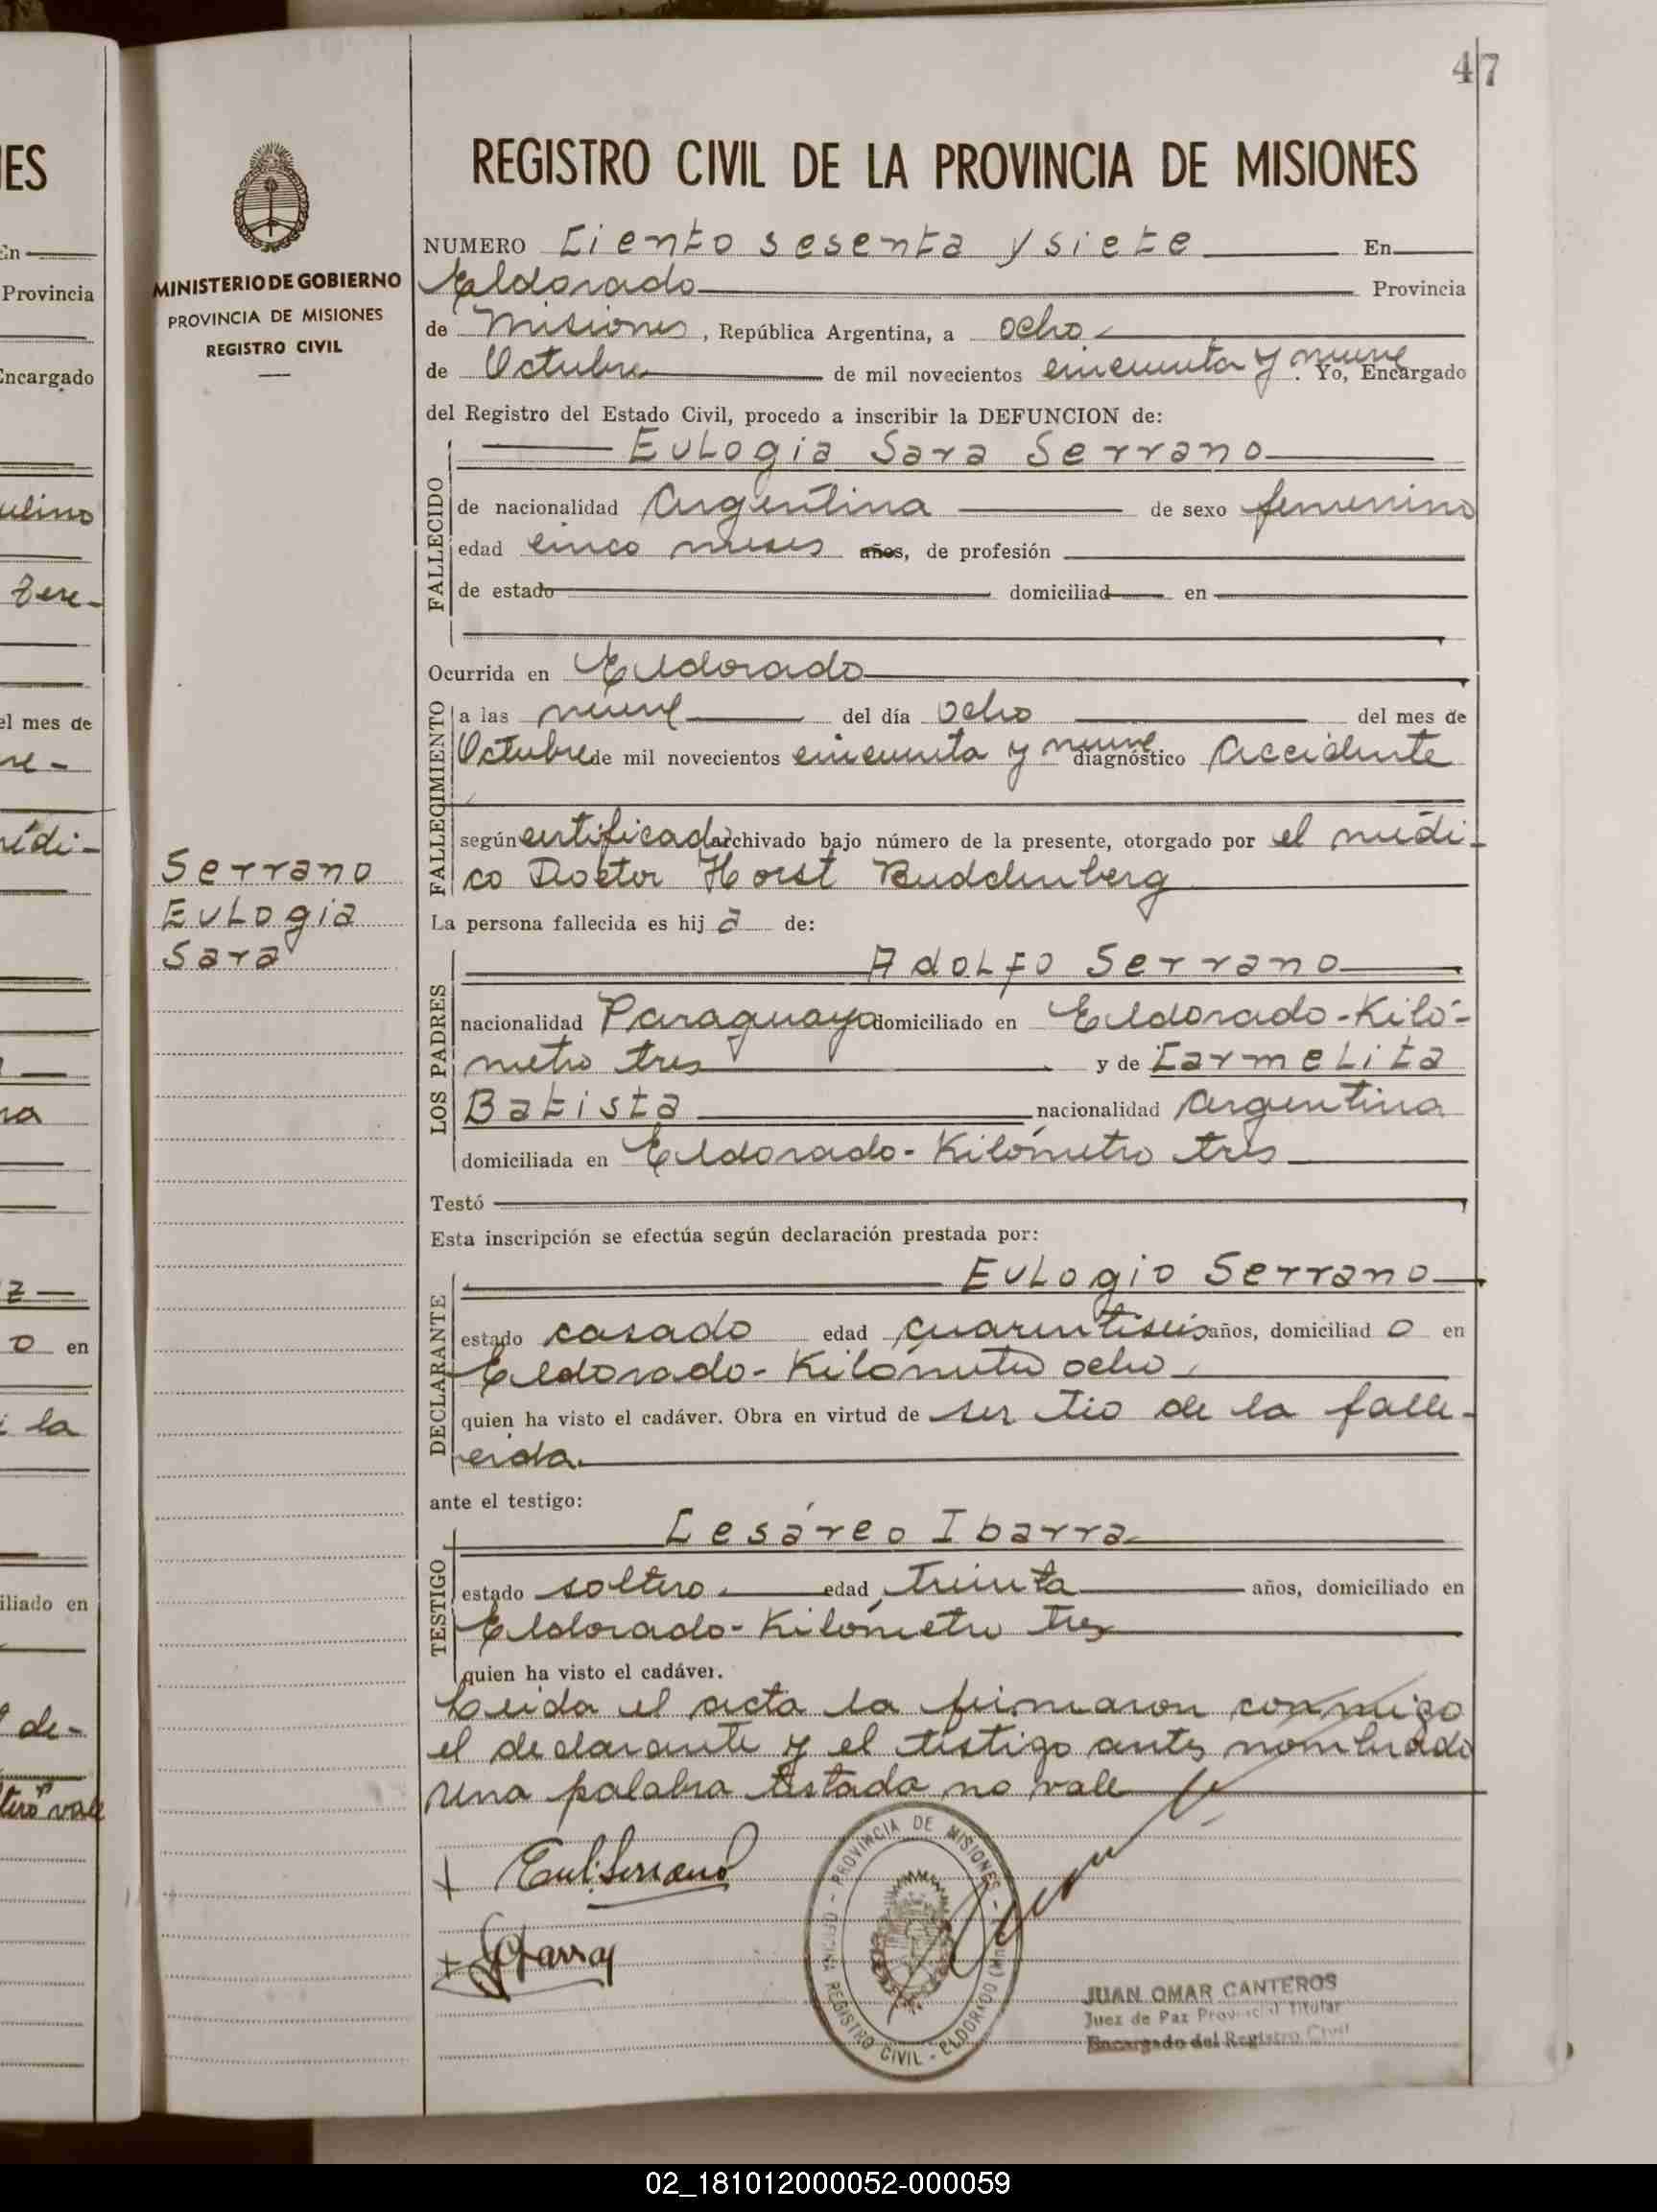 47
REGISTRO CIVIL DE LA PROVINCIA DE MISIONES
MINISTERIO DE GOBIERNO
PROVINCIA DE MISIONES
REGISTRO CIVIL
Serrano
Eulogia
Sara
NUMERO Ciento sesenta y siete En
Eldorado Provincia
de Misiones, República Argentina, a ocho
de Octubre de mil novecientos cincuenta y nueve. Yo, Encargado
del Registro del Estado Civil, procedo a inscribir la DEFUNCION de:
Eulogia Sara Serrano
FALLECIDO
de nacionalidad Argentina de sexo femenino
edad cinco meses años, de profesión
de estado domiciliad en
Ocurrida en Eldorado
FALLECIMIENTO
a las nueve del día ocho del mes de
Octubre de mil novecientos cincuenta y nueve diagnóstico Accidente
según certificado archivado bajo número de la presente, otorgado por el médi-
co Doctor Horst Buddenberg
La persona fallecida es hij a de:
LOS PADRES
Adolfo Serrano
nacionalidad Paraguayo domiciliado en Eldorado-Kiló-
metro tres y de Carmelita
Batista nacionalidad Argentina
domiciliada en Eldorado-Kilómetro tres
Testó
Esta inscripción se efectúa según declaración prestada por:
DECLARANTE
Eulogio Serrano
estado casado edad cuarentiseis años, domiciliad o en
Eldorado-Kilómetro ocho
quien ha visto el cadáver. Obra en virtud de ser tio de la falle-
cida.
ante el testigo:
TESTIGO
Cesáreo Ibarra
estado soltero edad treinta años, domiciliado en
Eldorado-Kilómetro tres
quien ha visto el cadáver.
Leida el acta la firmaron conmigo
el declarante y el testigo antes nombrado
una palabra testada no vale
Eul. Serrano
Ibarra
PROVINCIA DE MISIONES
OFICINA REGISTRO CIVIL - ELDORADO
JUAN OMAR CANTEROS
Juez de Paz Provincial Titular
Encargado del Registro Civil
ES
En
Provincia
Encargado
el mes de
en
la
iliado en
de-
vale
02_181012000052-000059